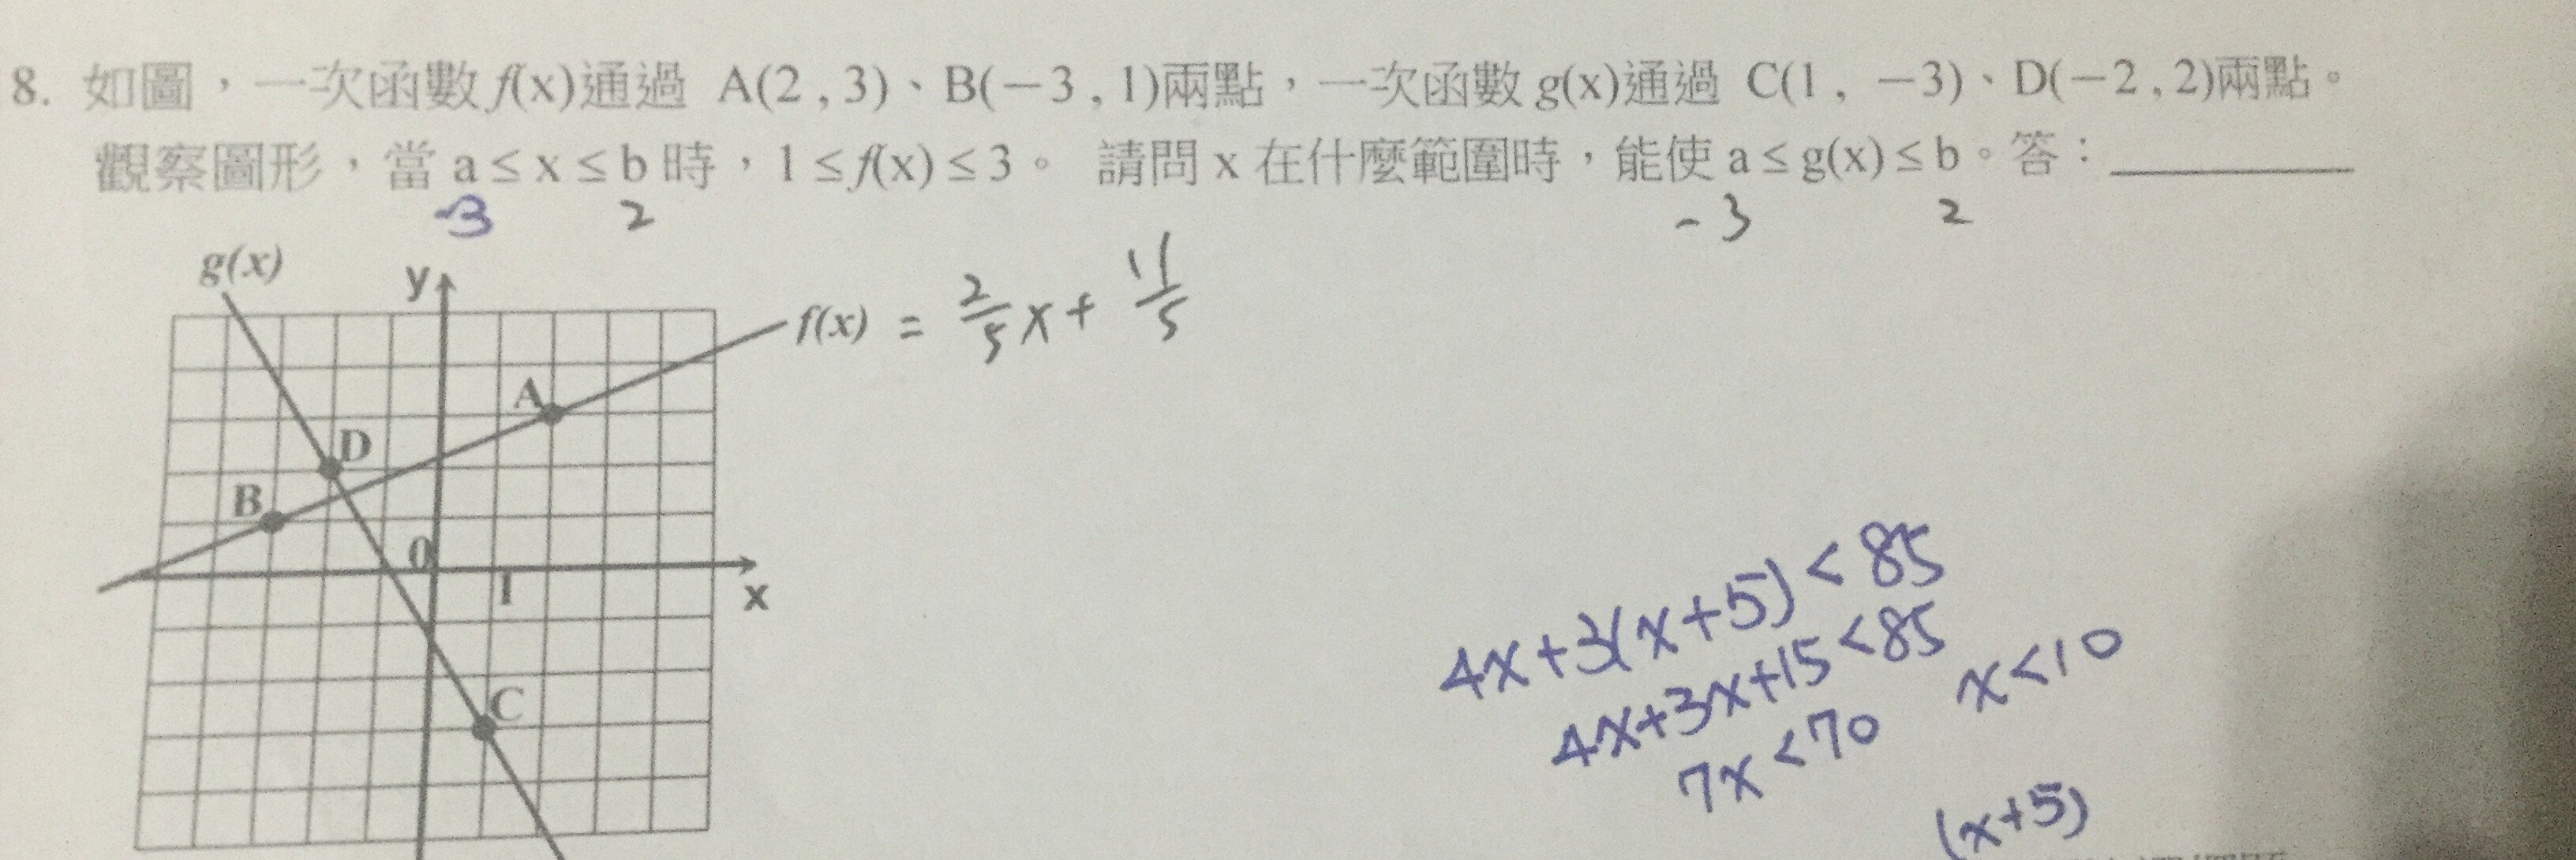 8. 如圖，一次函數 f(x)通過 A(2 , 3)、B(－3 , 1)兩點，一次函數 g(x)通過 C(1 , －3)、D(－2 , 2)兩點。
觀察圖形，當 a ≤ x ≤ b 時，1 ≤ f(x) ≤ 3。 請問 x 在什麼範圍時，能使 a ≤ g(x) ≤ b。答：
-3 2 -3 2
g(x)
y
f(x) = 2/5 x + 11/5
A
D
B
0
1
x
C
4x+3(x+5)<85
4x+3x+15<85
7x<70 x<10
(x+5)